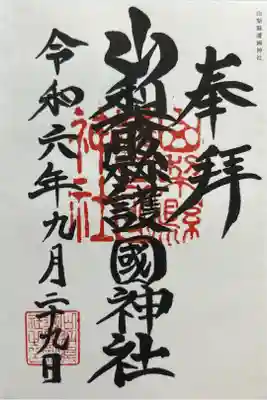 山梨縣護國神社
奉拝
山梨縣護國神社
令和六年九月二十九日
山梨縣
神社